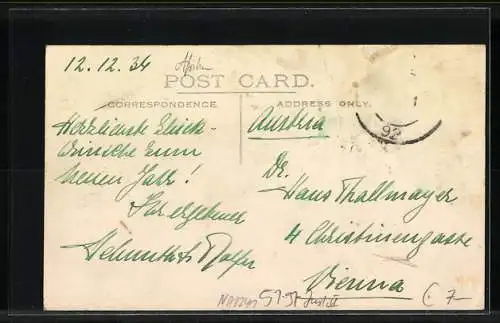 12.12.34
Afrika
POST CARD.
CORRESPONDENCE
ADDRESS ONLY.
92
Austria
Herzlichste Glück-
wünsche zum
neuen Jahr!
Ihr ergebener
Helmuth
Dr.
Hans Thallmayer
4 Christinengasse
Vienna
7-